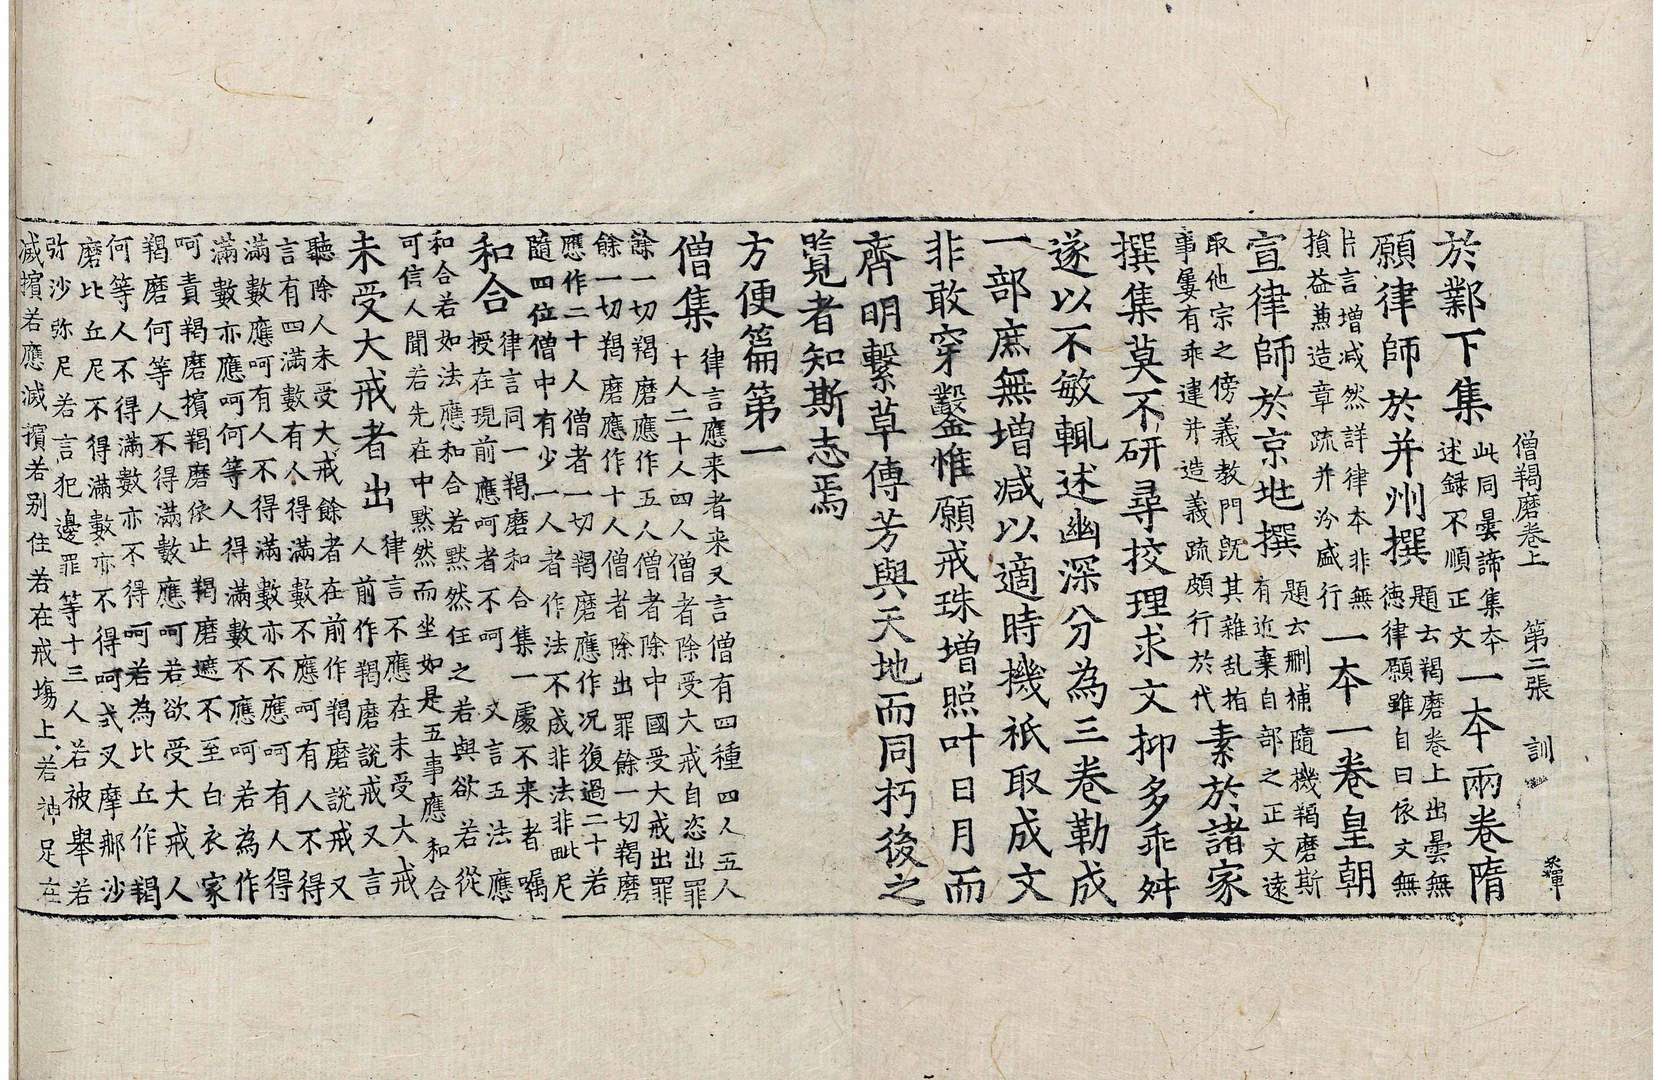 僧羯磨卷上 第二張 訓
於鄴下集 此同曇諦集本 述錄不順正文 一本兩卷隋
願律師於并州撰 題云羯磨卷上出曇無 德律願雖自曰依文無
片言增減然詳律本非無 損益兼造章疏并汾盛行 一本一卷皇朝
宣律師於京地撰 題云刪補隨機羯磨斯 有近棄自部之正文遠
取他宗之傍義教門既其雜乱指 事屢有乖違并造義疏頗行於代 素於諸家
撰集莫不研尋挍理求文抑多乖舛
遂以不敏輒述幽深分為三卷勒成
一部庶無增減以適時機祇取成文
非敢穿鑿惟願戒珠增照叶日月而
齊明繫草傳芳與天地而同朽後之
覽者知斯志焉
方便篇第一
僧集 律言應来者来又言僧有四種四人五人 十人二十人四人僧者除受大戒自恣出罪
餘一切羯磨應作五人僧者除中國受大戒出罪
餘一切羯磨應作十人僧者除出罪餘一切羯磨
應作二十人僧者一切羯磨應作况復過二十若
隨四位僧中有少一人者作法不成非法非毗尼
和合 律言同一羯磨和合集一處不来者囑 授在現前應呵者不呵 又言五法應
和合若如法應和合若默然任之若與欲若從
可信人聞若先在中默然而坐如是五事應和合
未受大戒者出 律言不應在未受大戒 人前作羯磨說戒又言
聽除人未受大戒餘者在前作羯磨說戒又
言有四滿數有人得滿數不應呵有人不得
滿數應呵有人不得滿數亦不應呵有人得
滿數亦應呵何等人得滿數不應呵若為作
呵責羯磨擯羯磨依止羯磨遮不至白衣家
羯磨何等人不得滿數應呵若欲受大戒人
何等人不得滿數亦不得呵若為比丘作羯
磨比丘尼不得滿數亦不得呵式叉摩那沙
弥沙弥尼若言犯邊罪等十三人若被舉若
滅擯若應滅擯若別住若在戒塲上若神足在